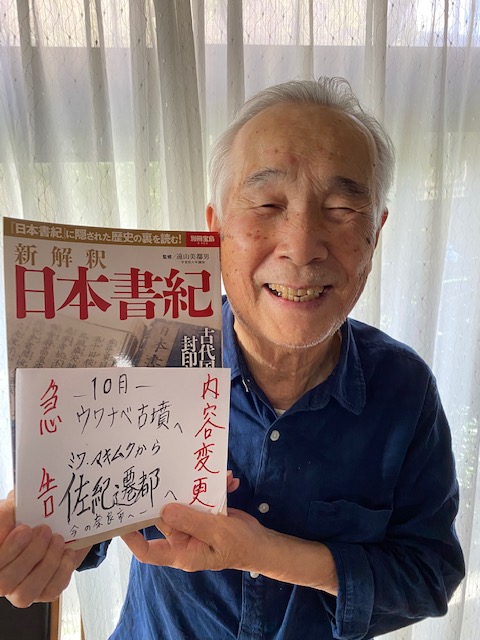 『日本書紀』に隠された歴史の裏を読む!
別冊宝島
新解釈
監修/遠山美都男
日本書紀
古代
封印
急告
内容変更
―10月―
ウワナベ古墳へ
ミワ、マキムクから
佐紀遷都へ
今の奈良市へ―